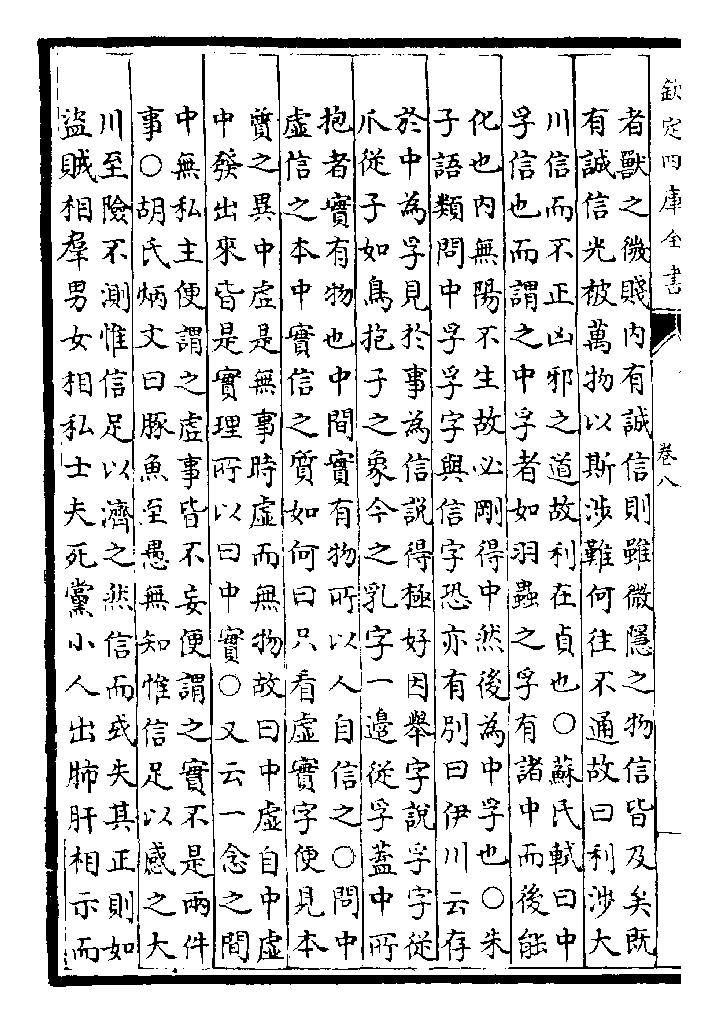 欽定四庫全書
卷八
者獸之微賤內有誠信則雖微隱之物信皆及矣既
有誠信光被萬物以斯涉難何往不通故曰利涉大
川信而不正凶邪之道故利在貞也○蘇氏軾曰中
孚信也而謂之中孚者如羽蟲之孚有諸中而後能
化也內無陽不生故必剛得中然後為中孚也○朱
子語類問中孚孚字與信字恐亦有別曰伊川云存
於中為孚見於事為信說得極好因舉字說孚字從
爪從子如鳥抱子之象今之乳字一邊從孚蓋中所
抱者實有物也中間實有物所以人自信之○問中
虛信之本中實信之質如何曰只看虛實字便見本
質之異中虛是無事時虛而無物故曰中虛自中虛
中發出來皆是實理所以曰中實○又云一念之間
中無私主便謂之虛事皆不妄便謂之實不是兩件
事○胡氏炳文曰豚魚至愚無知惟信足以感之大
川至險不測惟信足以濟之然信而或失其正則如
盜賊相羣男女相私士夫死黨小人出肺肝相示而